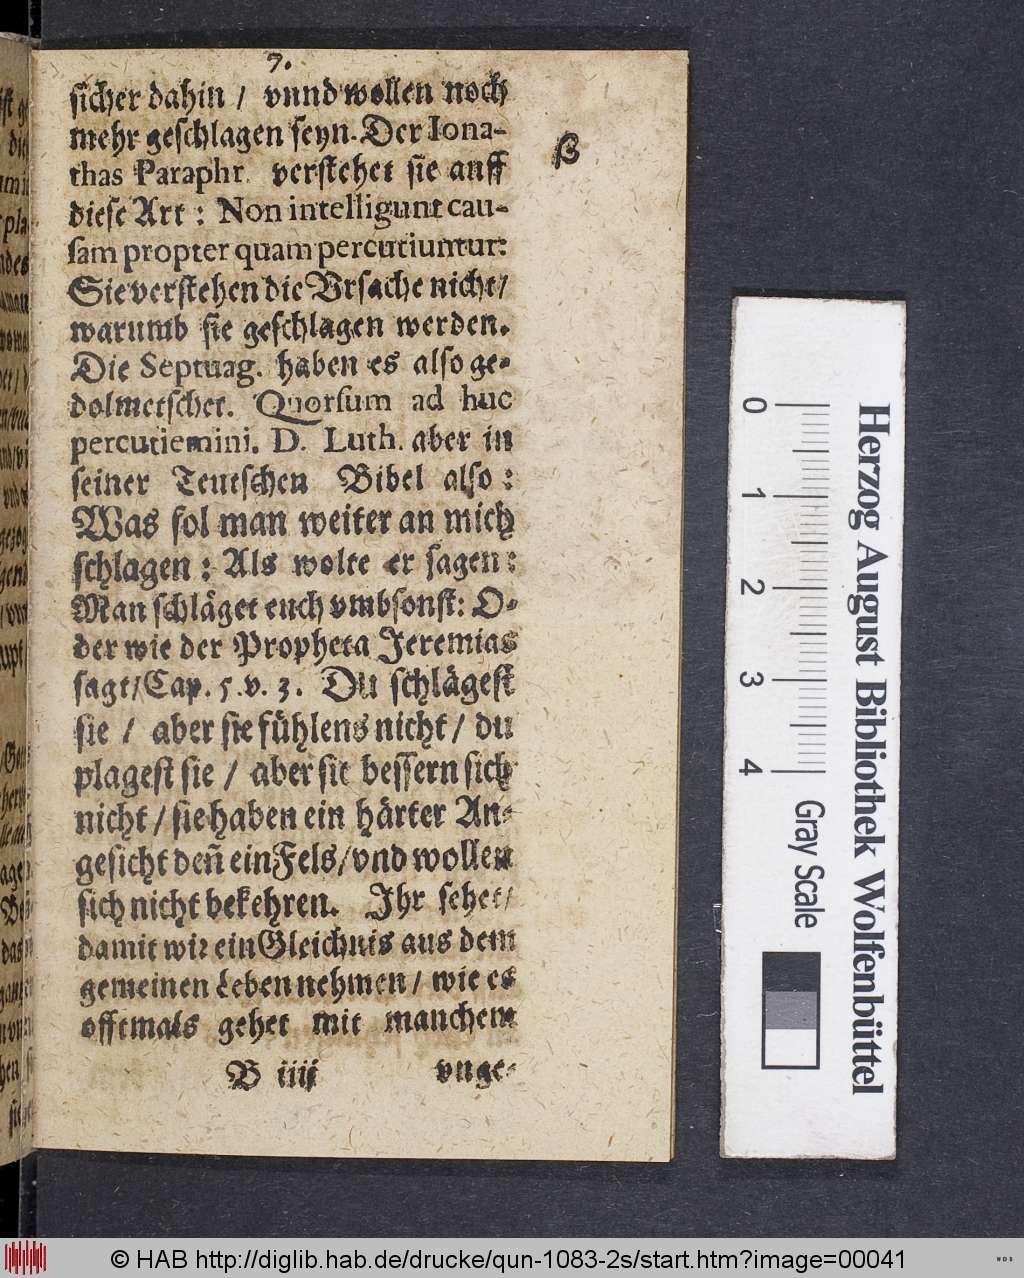 7.
sicher dahin / vnnd wollen noch
mehr geschlagen seyn. Der Iona-
thas Paraphr. verstehet sie auff
diese Art : Non intelligunt cau-
sam propter quam percutiuntur:
Sie verstehen die Vrsache nicht /
warumb sie geschlagen werden.
Die Septuag. haben es also ge-
dolmetschet. Quorsum ad huc
percutiemini. D. Luth. aber in
seiner Teutschen Bibel also :
Was sol man weiter an mich
schlagen : Als wolte er sagen :
Man schläget euch vmbsonst: O-
der wie der Propheta Jeremias
sagt / Cap. 5. v. 3. Du schlägest
sie / aber sie fühlens nicht / du
plagest sie / aber sie bessern sich
nicht / sie haben ein härter An-
gesicht deñ ein Fels / vnd wollen
sich nicht bekehren. Ihr sehet /
damit wir ein Gleichnis aus dem
gemeinen Leben nehmen / wie es
offtmals gehet mit manchem
B iiij vnge-
ß
0 1 2 3 4
Gray Scale
Herzog August Bibliothek Wolfenbüttel
© HAB http://diglib.hab.de/drucke/qun-1083-2s/start.htm?image=00041